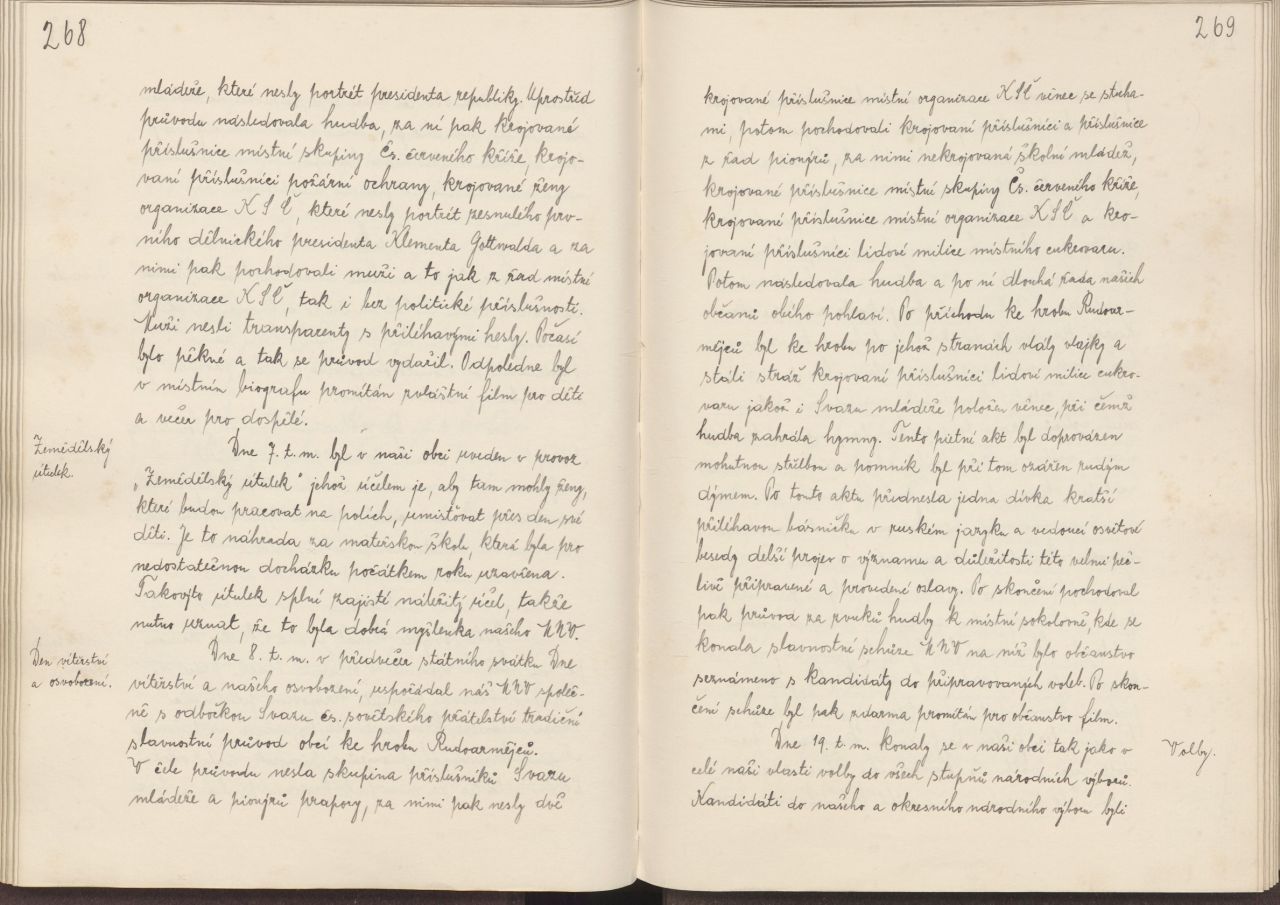 268
mládeže, které nesly portrét presidenta republiky. Uprostřed
průvodu následovala hudba, za ní pak krojované
příslušnice místní skupiny Čs. červeného kříže, krojo-
vaní příslušníci požární ochrany, krojované ženy
organizace KSČ, které nesly portrét zesnulého prv-
ního dělnického presidenta Klementa Gottwalda a za
nimi pak pochodovali muži a to jak z řad místní
organizace KSČ, tak i bez politické příslušnosti.
Muži nesli transparenty s přiléhavými hesly. Počasí
bylo pěkné a tak se průvod vydařil. Odpoledne byl
v místním biografu promítán zvláštní film pro děti
a večer pro dospělé.
Zemědělský
útulek.
Dne 7. t. m. byl v naší obci uveden v provoz
"Zemědělský útulek" jehož účelem je, aby tam mohly ženy,
které budou pracovat na polích, umisťovat přes den své
děti. Je to náhrada za mateřskou školu, která byla pro
nedostatečnou docházku počátkem roku uzavřena.
Takovýto útulek splní zajisté náležitý účel, takže
nutno uznat, že to byla dobrá myšlenka našeho MNV.
Den vítězství
a osvobození.
Dne 8. t. m. v předvečer státního svátku Dne
vítězství a našeho osvobození, uspořádal náš MNV společ-
ně s odbočkou Svazu čs. sovětského přátelství tradiční
slavnostní průvod obcí ke hrobu Rudoarmějců.
V čele průvodu nesla skupina příslušníků Svazu
mládeže a pionýrů prapory, za nimi pak nesly dvě
269
krojované příslušnice místní organizace KSČ věnec se stuha-
mi, potom pochodovali krojovaní příslušníci a příslušnice
z řad pionýrů, za nimi nekrojovaná školní mládež,
krojované příslušnice místní skupiny Čs. červeného kříže,
krojované příslušnice místní organizace KSČ a kro-
jovaní příslušníci lidové milice místního cukrovaru.
Potom následovala hudba a po ní dlouhá řada našich
občanů obého pohlaví. Po příchodu ke hrobu Rudoar-
mějců byl ke hrobu po jehož stranách vlály vlajky a
stáli stráž krojovaní příslušníci lidové milice cukro-
varu jakož i Svazu mládeže položen věnec, při čemž
hudba zahrála hymny. Tento pietní akt byl doprovázen
mohutnou střelbou a pomník byl při tom ozářen rudým
dýmem. Po tomto aktu přednesla jedna dívka kratší
přiléhavou básničku v ruském jazyku a vedoucí osvětové
besedy delší projev o významu a důležitosti této velmi peč-
livě připravené a provedené oslavy. Po skončení pochodoval
pak průvod za zvuků hudby k místní sokolovně, kde se
konala slavnostní schůze MNV na níž bylo občanstvo
seznámeno s kandidáty do připravovaných voleb. Po skon-
čení schůze byl pak zdarma promítán pro občanstvo film.
Volby.
Dne 19. t. m. konaly se v naší obci tak jako v
celé naší vlasti volby do všech stupňů národních výborů.
Kandidáti do našeho a okresního národního výboru byli